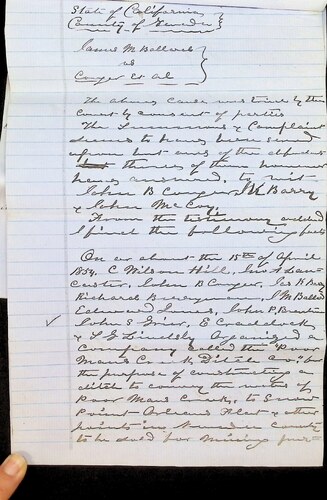 State of California
County of
James M Bullock
vs
Conger Et al
The above cause was tried by the
court by consent of parties
The Summons & Complaint
seems to have been served
upon but one of the
the of them however
have to wit
John B Conger, Barry
& John McCoy.
From the testimony
I find the following facts
On or about the 15th of April
1854. C Wilson Hill, Geo A Lan
caster, John B Conger, Jas K Barry
Richard J M Bullock
Edward Jones, John P.
John S Grier, E Craddock
& Lindsly organized a
Company called the "Poor
Mans Creek Ditch Co," for
the purpose of constructing a
ditch to convey the waters of
Poor Mans Creek, to Snow
Point Orleans Flat & other
points in Nevada County
to be sold for mining